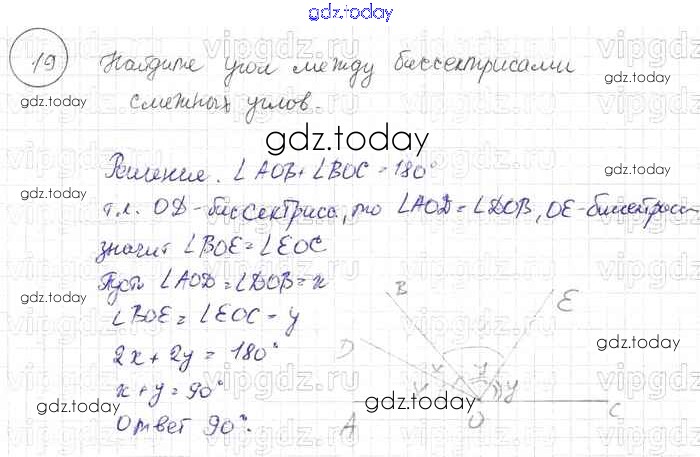 gdz.today
19 Найдите угол между биссектрисами
смежных углов.
gdz.today
gdz.today
gdz.today
Решение. ∠AOB + ∠BOC = 180°
т.к. OD - биссектриса, то ∠AOD = ∠DOB, OE - биссектриса
значит ∠BOE = ∠EOC
gdz.today
gdz.today
Пусть ∠AOD = ∠DOB = x
∠BOE = ∠EOC = y
gdz.today
2x + 2y = 180°
x + y = 90°
Ответ 90°.
B
E
D
x
y
x
y
A
O
C
gdz.today
gdz.today
gdz.today
gdz.today
vipgdz.ru
vipgdz.ru
vipgdz.ru